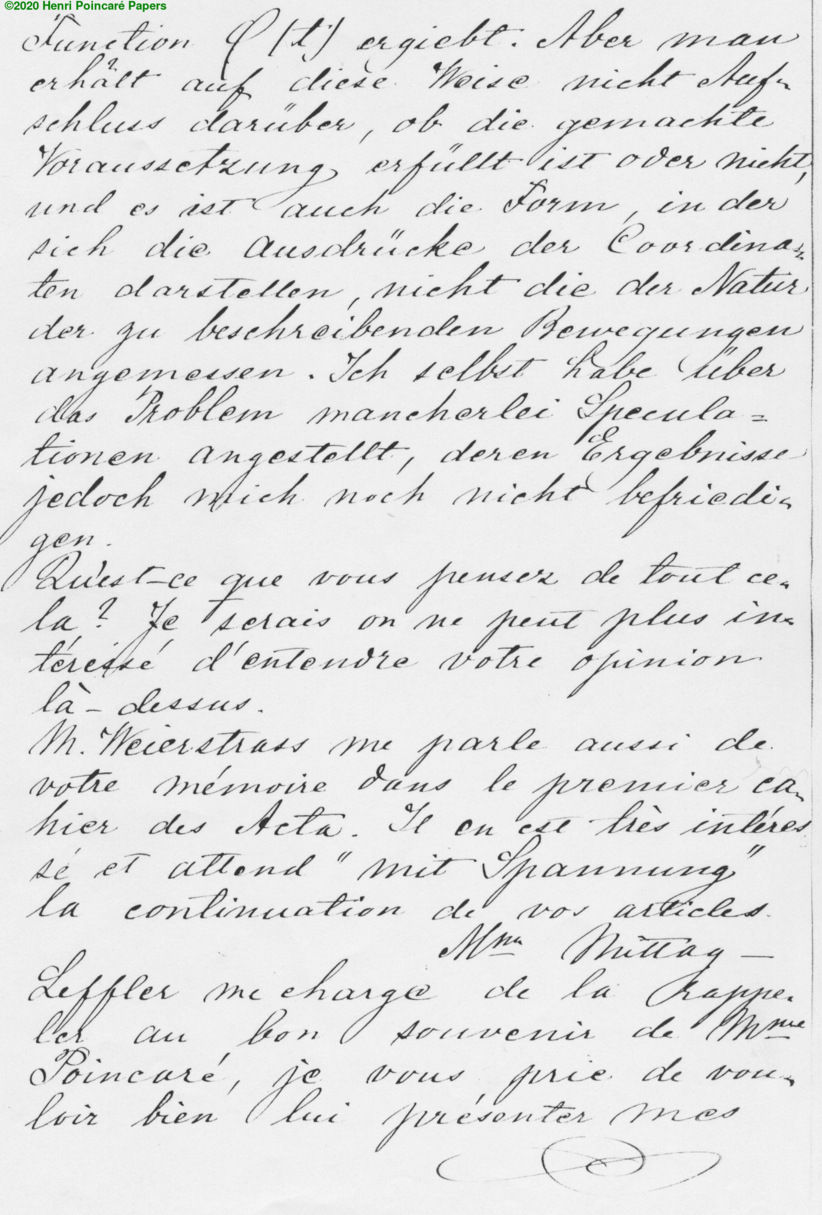 ©2020 Henri Poincaré Papers
Function φ(t) ergiebt. Aber man
erhält auf diese Weise nicht Auf-
schluss darüber, ob die gemachte
Voraussetzung erfüllt ist oder nicht,
und es ist auch die Form, in der
sich die Ausdrücke der Coordina-
ten darstellen, nicht die der Natur
der zu beschreibenden Bewegungen
angemessen. Ich selbst habe über
das Problem mancherlei Specula=
tionen angestellt, deren Ergebnisse
jedoch mich noch nicht befriedi-
gen.
Qu'est-ce que vous pensez de tout ce-
la? Je serais on ne peut plus in-
téressé d'entendre votre opinion
là-dessus.
M. Weierstrass me parle aussi de
votre mémoire dans le premier ca-
hier des Acta. Il en est très intéres
sé et attend "mit Spannung"
la continuation de vos articles.
Mme Mittag-
Leffler me charge de la rappe-
ler au bon souvenir de Mme
Poincaré, je vous prie de vou-
loir bien lui présenter mes